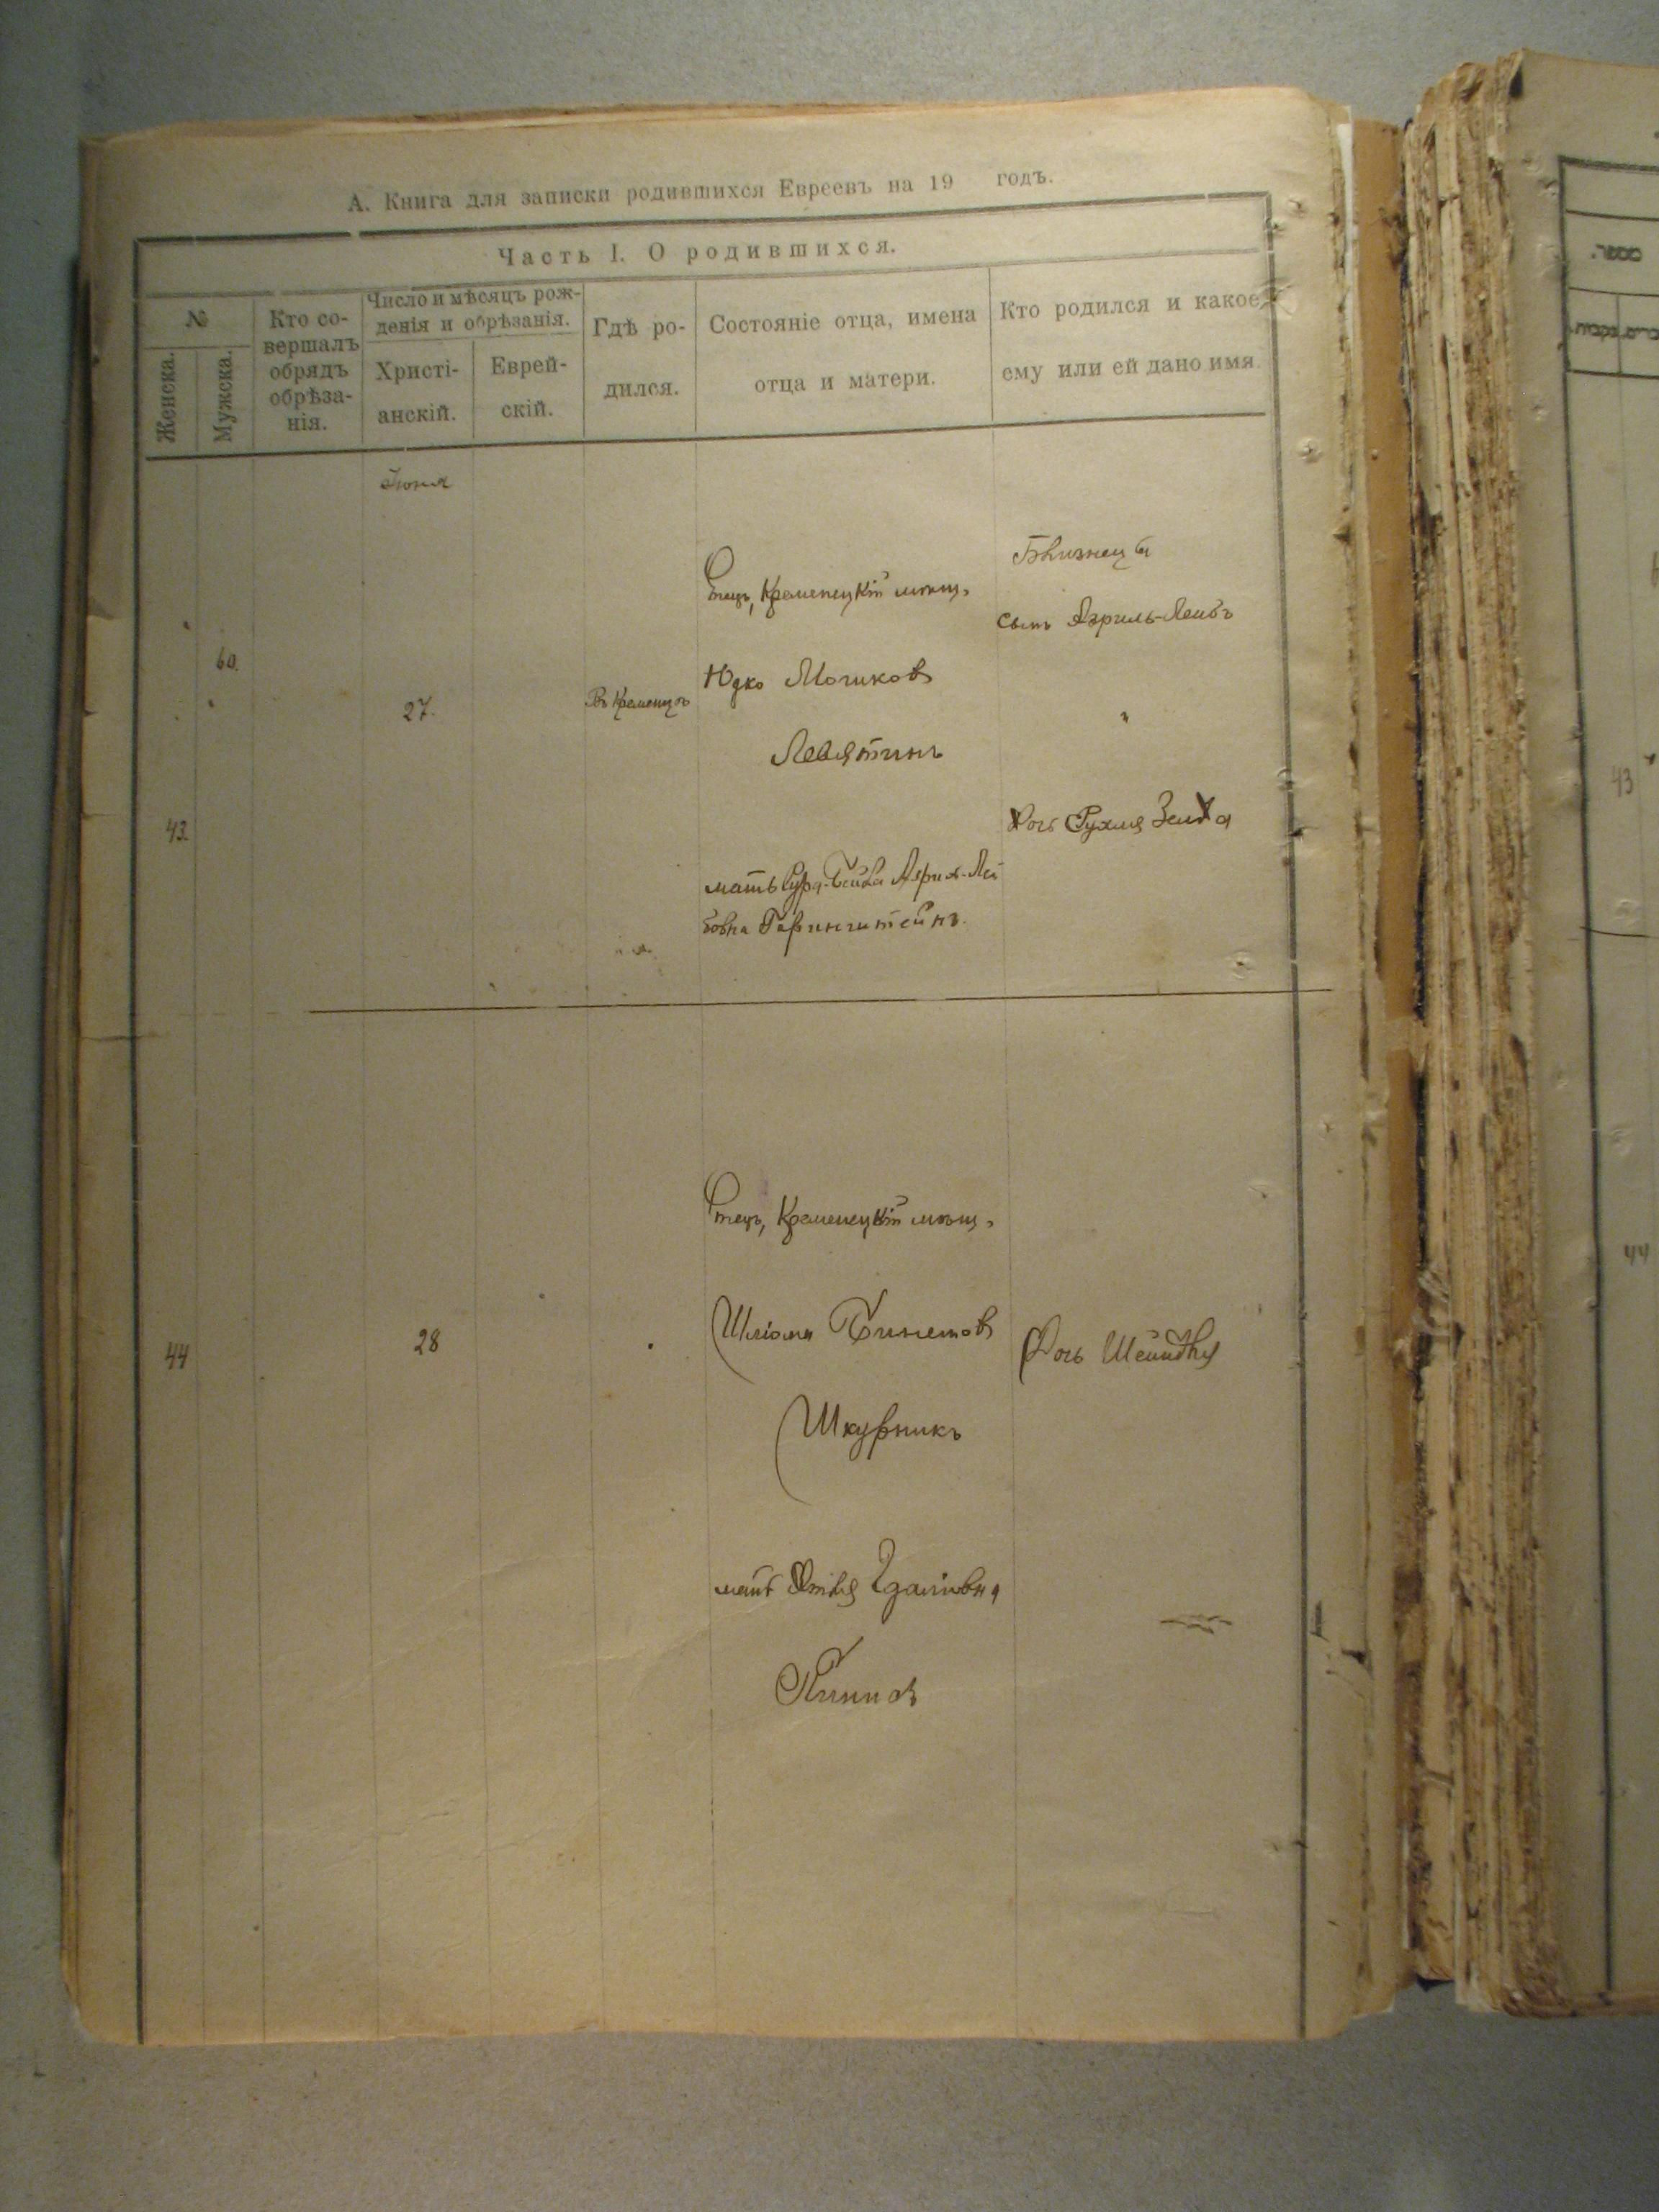 А. Книга для записки родившихся Евреевъ на 19 годъ.
Часть I. О родившихся.
№
Женска.
Мужска.
Кто со-
вершалъ
обрядъ
обрѣза-
нія.
Число и мѣсяцъ рож-
денія и обрѣзанія.
Христі-
анскій.
Еврей-
скій.
Гдѣ ро-
дился.
Состояніе отца, имена
отца и матери.
Кто родился и какое
ему или ей дано имя.
Іюня
60.
43.
27.
Въ Кременцѣ
Отецъ, Кременецкій мѣщ.
Юдко Мошков
Левятинъ
мать Сура-Бейла Азрил-Лей
бовна
Близнецы
сынъ Азриль-Лейбъ
"
Дочь Рухля
44
28
Отецъ, Кременецкій мѣщ.
Шліома
Шкурникъ
мать
Дочь Шейндля
43
44